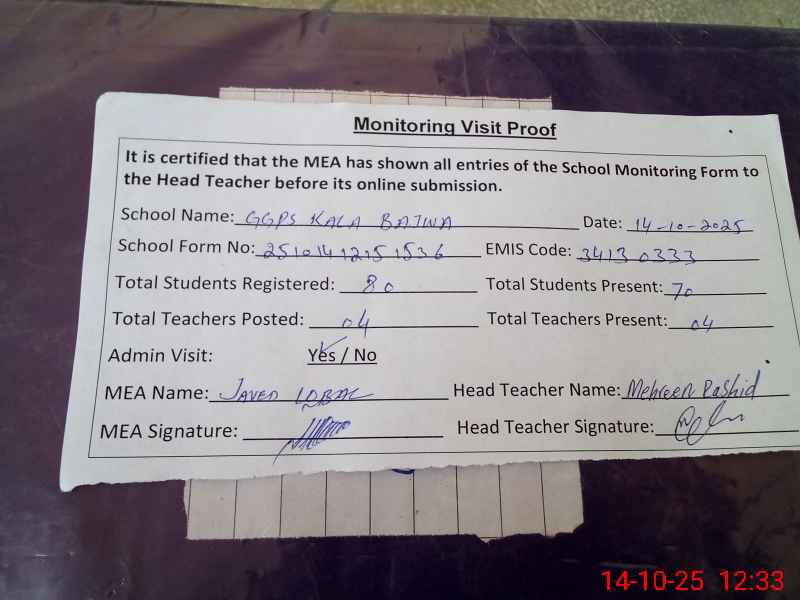 Monitoring Visit Proof
It is certified that the MEA has shown all entries of the School Monitoring Form to
the Head Teacher before its online submission.
School Name: GGPS KALA BAJWA Date: 14-10-2025
School Form No: 25101412151536 EMIS Code: 34130333
Total Students Registered: 80 Total Students Present: 70
Total Teachers Posted: 04 Total Teachers Present: 04
Admin Visit: Yes / No
MEA Name: JAVED IQBAL Head Teacher Name: Mehreen Rashid
MEA Signature: Head Teacher Signature:
14-10-25 12:33